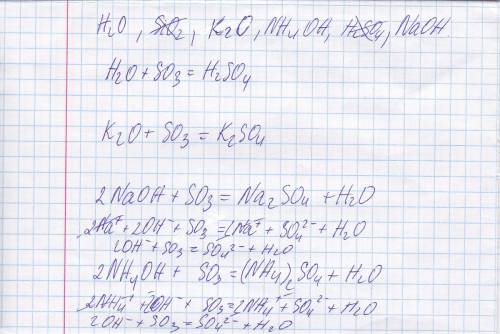 H₂O, S̶i̶O̶₂̶, K₂O, NH₄OH, H̶₂̶S̶O̶₄̶, NaOH.
H₂O + SO₃ = H₂SO₄
K₂O + SO₃ = K₂SO₄
2NaOH + SO₃ = Na₂SO₄ + H₂O
2Na⁺ + 2OH⁻ + SO₃ = 2Na⁺ + SO₄²⁻ + H₂O
2OH⁻ + SO₃ = SO₄²⁻ + H₂O
2NH₄OH + SO₃ = (NH₄)₂SO₄ + H₂O
2NH₄⁺ + 2OH⁻ + SO₃ = 2NH₄⁺ + SO₄²⁻ + H₂O
2OH⁻ + SO₃ = SO₄²⁻ + H₂O